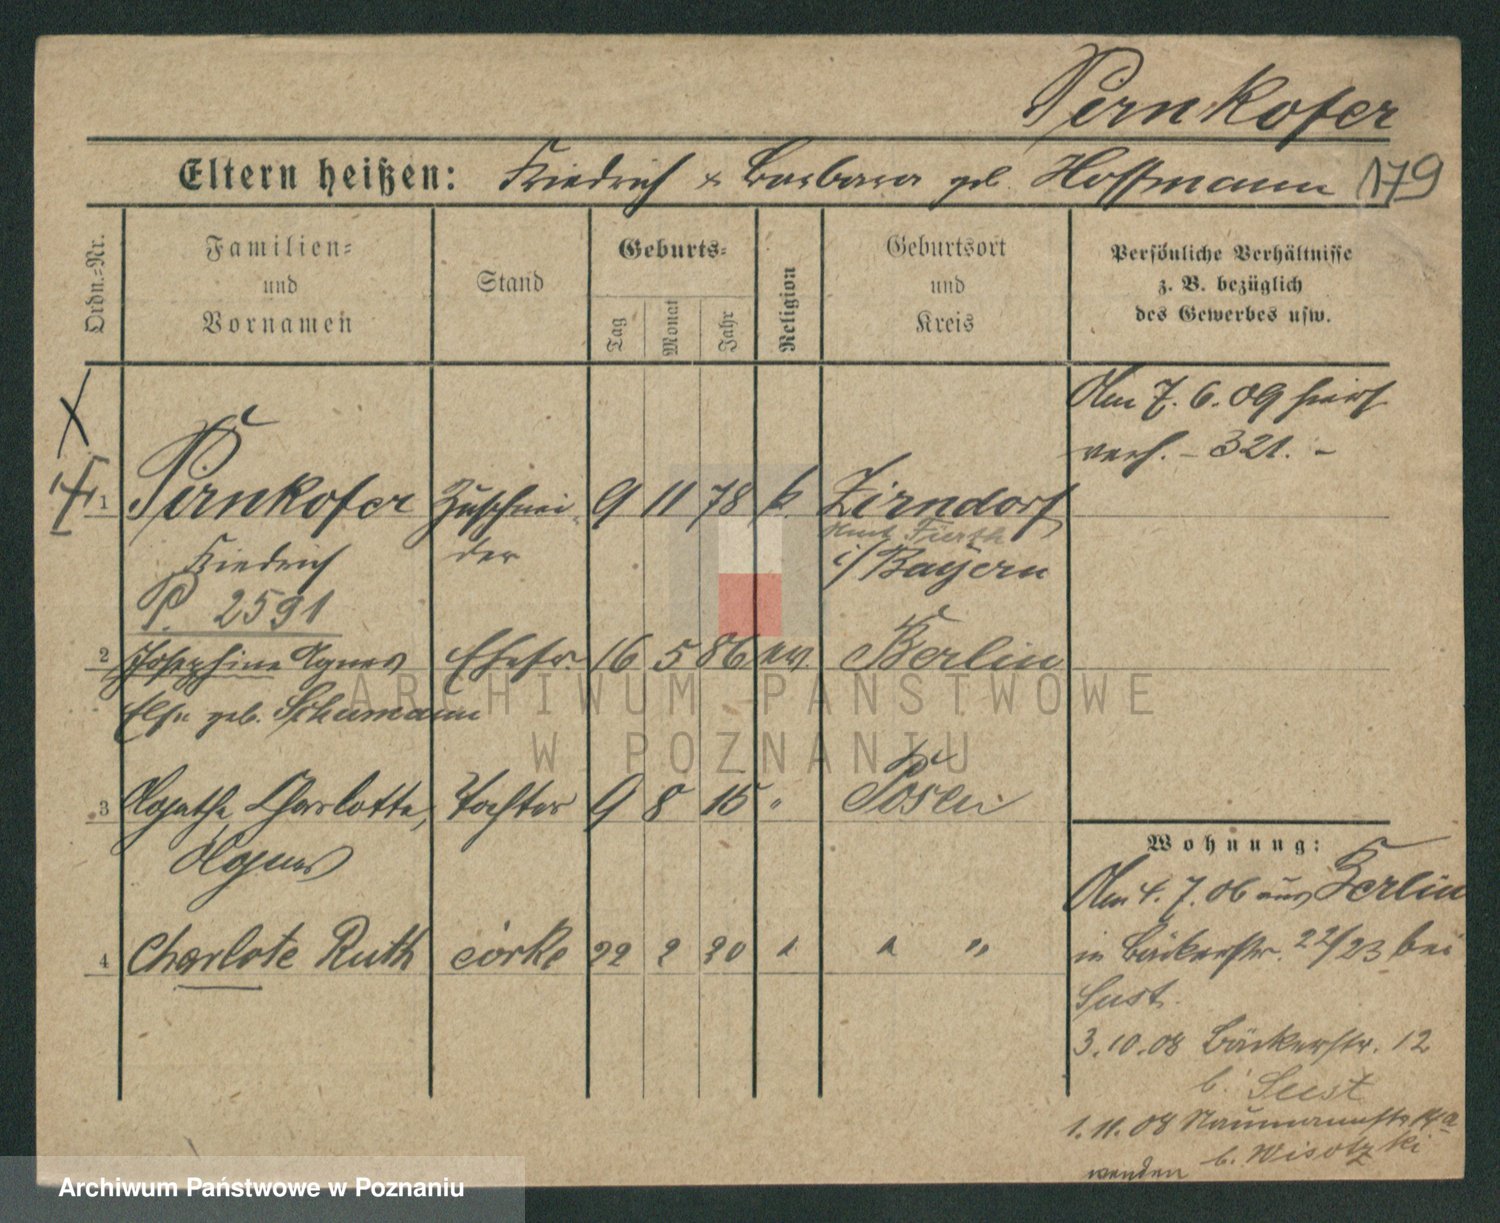 Pernkofer
Eltern heißen: Friedrich & Barbara geb. Hoffmann 179
Ordn.-Nr.
Familien- und Vornamen
Stand
Geburts-
Tag
Monat
Jahr
Religion
Geburtsort und Kreis
Persönliche Verhältnisse
z. B. bezüglich
des Gewerbes usw.
Am 7. 6. 09 hier
verh. - 321. -
1 Pernkofer Zuschnei- 9 11 78 k. Zirndorf
Amt Fierth
Friedrich der i/Bayern
P. 2591
2 Josephine Agnes Ehefr. 16 5 86 ev. Berlin
Else geb. Schumann
3 Agathe, Charlotte, Tochter 9 8 15 " Posen
Agnes
4 Charlote Ruth córka 22 2 20 " " "
Wohnung:
Am 4. 7. 06 aus Berlin
in Bäckerstr. 22/23 bei
Sust.
3. 10. 08 Bäckerstr. 12
b. Seest
1. 11. 08 Naumannstr. 14a
b. Wisotzki
wenden
ARCHIWUM PAŃSTWOWE
W POZNANIU
Archiwum Państwowe w Poznaniu